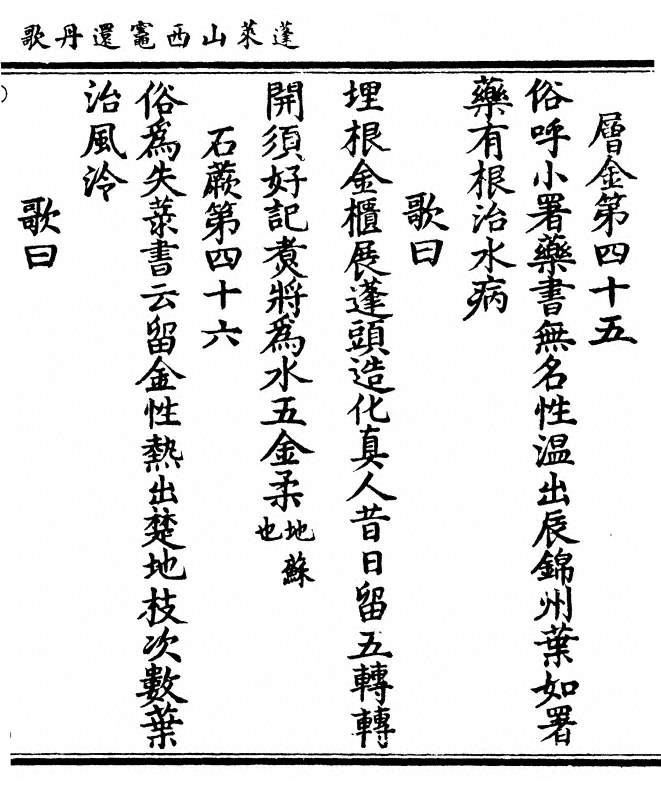 蓬萊山西竈還丹歌
層金第四十五
俗呼小署藥書無名性温出辰錦州葉如署
藥有根治水病
歌曰
埋根金櫃展蓬頭造化真人昔日留五轉轉
開須好記煑將為水五金柔地蘇也
石蕨第四十六
俗為失蕵書云留金性熱出楚地枝次數葉
治風泠
歌曰